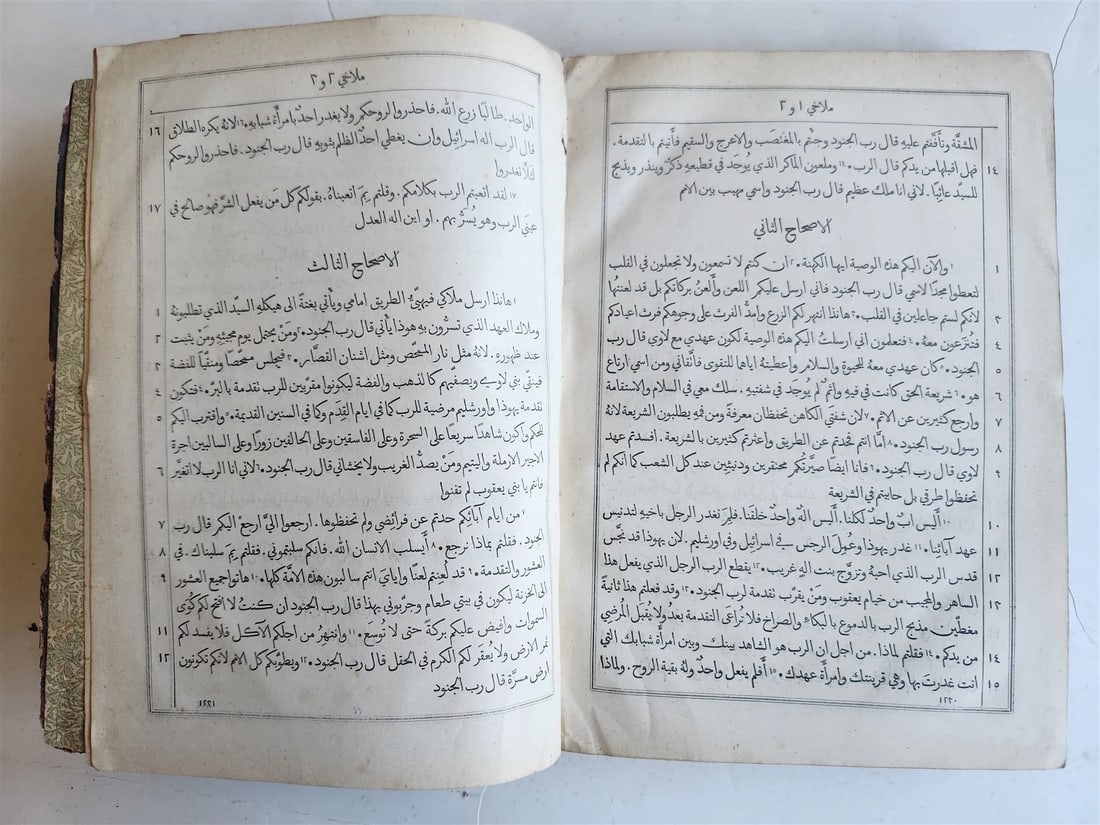 ملاخي ١ و٢
المشقَّة وتأففتم عليه قال رب الجنود وجئتم بالمغتصَب والاعرج والسقيم فأتيتم بالتقدمة.
١٤ فهل اقبلها من يدكم قال الرب. ١٤وملعون الماكر الذي يوجد في قطيعهِ ذكرٌ وينذر ويذبح
للسيّد عائبًا. لاني انا ملك عظيم قال رب الجنود واسمي مهيب بين الامم
الاصحاح الثاني
١ ١والآن اليكم هذه الوصية ايها الكهنة. ٢ان كنتم لا تسمعون ولا تجعلون في القلب
لتعطوا مجدًا لاسمي قال رب الجنود فاني ارسل عليكم اللعن وألعنُ بركاتكم بل قد لعنتها
٣ لانكم لستم جاعلين في القلب. ٣هانذا انتهر لكم الزرع وامدُّ الفرث على وجوهكم فرث اعيادكم
٤ فتُنزَعون معهُ. ٤فتعلمون اني ارسلتُ اليكم هذه الوصية لكون عهدي مع لاوي قال رب
٥ الجنود. ٥كان عهدي معهُ للحيوة والسلام واعطيتهُ اياهما للتقوى فاتَّقاني ومن اسمي ارتاع
٦ هو. ٦شريعة الحق كانت في فيهِ واثمٌ لم يُوجَد في شفتيهِ. سلك معي في السلام والاستقامة
٧ وارجع كثيرين عن الاثم. ٧لان شفتي الكاهن تحفظان معرفةً ومن فمهِ يطلبون الشريعة لانهُ
٨ رسول رب الجنود. ٨امَّا انتم فحدتم عن الطريق واعثرتم كثيرين بالشريعة. افسدتم عهد
٩ لاوي قال رب الجنود. ٩فانا ايضًا صيَّرتُكم محتقرين ودنيئين عند كل الشعب كما انكم لم
تحفظوا طرقي بل حابيتم في الشريعة
١٠ ١٠أَليس ابٌ واحدٌ لكلنا. أَليس الهٌ واحدٌ خلقنا. فلِمَ نغدر الرجل باخيهِ لتدنيس
١١ عهد آبائنا. ١١غدر يهوذا وعُمِلَ الرجس في اسرائيل وفي اورشليم. لان يهوذا قد نجَّس
١٢ قدس الرب الذي احبهُ وتزوَّج بنت الهٍ غريب. ١٢يقطع الرب الرجل الذي يفعل هذا
١٣ الساهر والمجيب من خيام يعقوب ومَنْ يقرّب تقدمة لرب الجنود. ١٣وقد فعلتم هذا ثانيةً
مغطّين مذبح الرب بالدموع بالبكاء والصراخ فلا تُراعَى التقدمة بعدُ ولا يُقبَل المُرضي
١٤ من يدكم. ١٤فقلتم لماذا. من اجل ان الرب هو الشاهد بينك وبين امرأة شبابك التي
١٥ انت غدرتَ بها وهي قرينتك وامرأة عهدك. ١٥أَفلم يفعل واحدٌ ولهُ بقية الروح. ولماذا
١٢٢٠
ملاخي ٢ و٣
الواحد. طالبًا زرع الله. فاحذروا لروحكم ولا يغدر احدٌ بامرأة شبابهِ. ١٦لانهُ يكره الطلاق ١٦
قال الرب اله اسرائيل وان يغطي احدٌ الظلم بثوبهِ قال رب الجنود. فاحذروا لروحكم
لئلَّا تغدروا
١٧لقد اتعبتم الرب بكلامكم. وقلتم بِمَ اتعبناهُ. بقولكم كل مَن يفعل الشرَّ فهو صالح في ١٧
عيني الرب وهو يُسَرُّ بهم. او اين اله العدل
الاصحاح الثالث
١هانذا ارسل ملاكي فيهيّئُ الطريق امامي ويأتي بغتةً الى هيكلهِ السيّد الذي تطلبونهُ ١
وملاك العهد الذي تسرُّون بهِ هوذا يأتي قال رب الجنود. ٢ومَنْ يحتمل يوم مجيئِهِ ومَنْ يثبت ٢
عند ظهورهِ. لانهُ مثل نار المُمحِّص ومثل اشنان القصَّار. ٣فيجلس ممحِّصًا ومنقّيًا للفضة ٣
فينقّي بني لاوي ويصفّيهم كالذهب والفضة ليكونوا مقرّبين للرب تقدمة بالبرّ. ٤فتكون ٤
تقدمة يهوذا واورشليم مرضية للرب كما في ايام القِدَم وكما في السنين القديمة. ٥واقترب اليكم ٥
للحكم واكون شاهدًا سريعًا على السحرة وعلى الفاسقين وعلى الحالفين زورًا وعلى السالبين اجرة
الاجير الارملة واليتيم ومَنْ يصدُّ الغريب ولا يخشاني قال رب الجنود. ٦لاني انا الرب لا اتغيَّر ٦
فانتم يا بني يعقوب لم تفنوا
٧من ايام آبائكم حدتم عن فرائضي ولم تحفظوها. ارجعوا اليَّ ارجعْ اليكم قال رب ٧
الجنود. فقلتم بماذا نرجع. ٨أَيسلب الانسان الله. فانكم سلبتموني. فقلتم بِمَ سلبناك. في ٨
العشور والتقدمة. ٩قد لُعِنتم لعنًا وإيايَ انتم سالبون هذه الامَّة كلها. ١٠هاتوا جميع العشور ٩
الى الخزنة ليكون في بيتي طعام وجرّبوني بهذا قال رب الجنود ان كنتُ لا افتح لكم كُوَى
السموات وافيض عليكم بركةً حتى لا تُوسَع. ١١وانتهرُ من اجلكم الآكل فلا يفسد لكم ١١
ثمر الارض ولا يُعقَر لكم الكرم في الحقل قال رب الجنود. ١٢ويطوّبكم كل الامم لانكم تكونون ١٢
ارض مسرَّة قال رب الجنود
١٢٢١